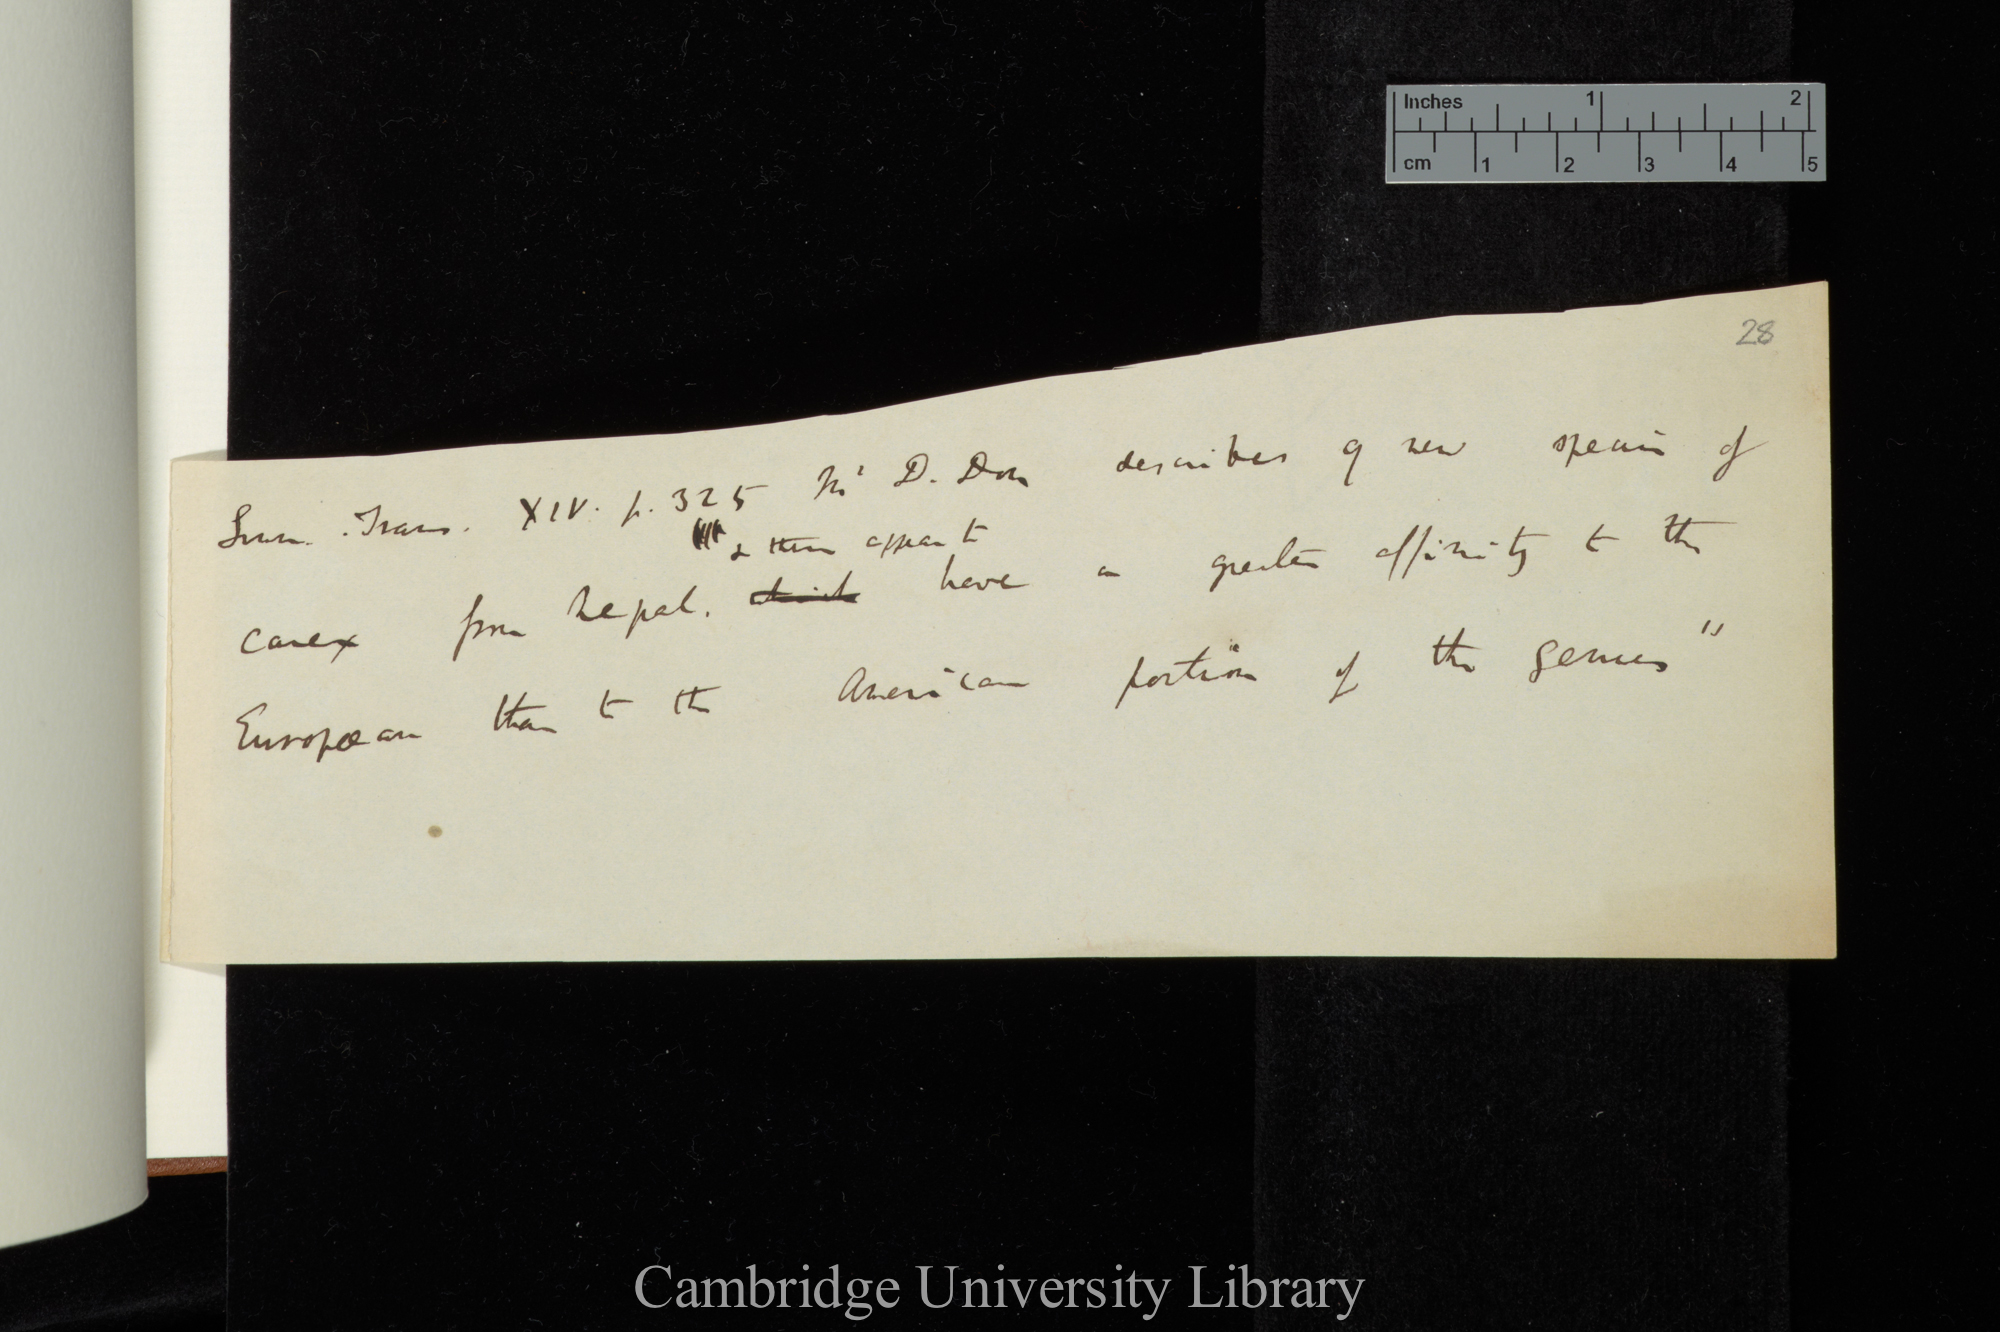 Inches 1 2
cm 1 2 3 4 5
28
Linn. Trans. XIV. p. 325 Mr D. Don describes 9 new species of
& these appear to
carex from Nepal. which have a greater affinity to the
Europæan than to the American portion of the genus"
Cambridge University Library